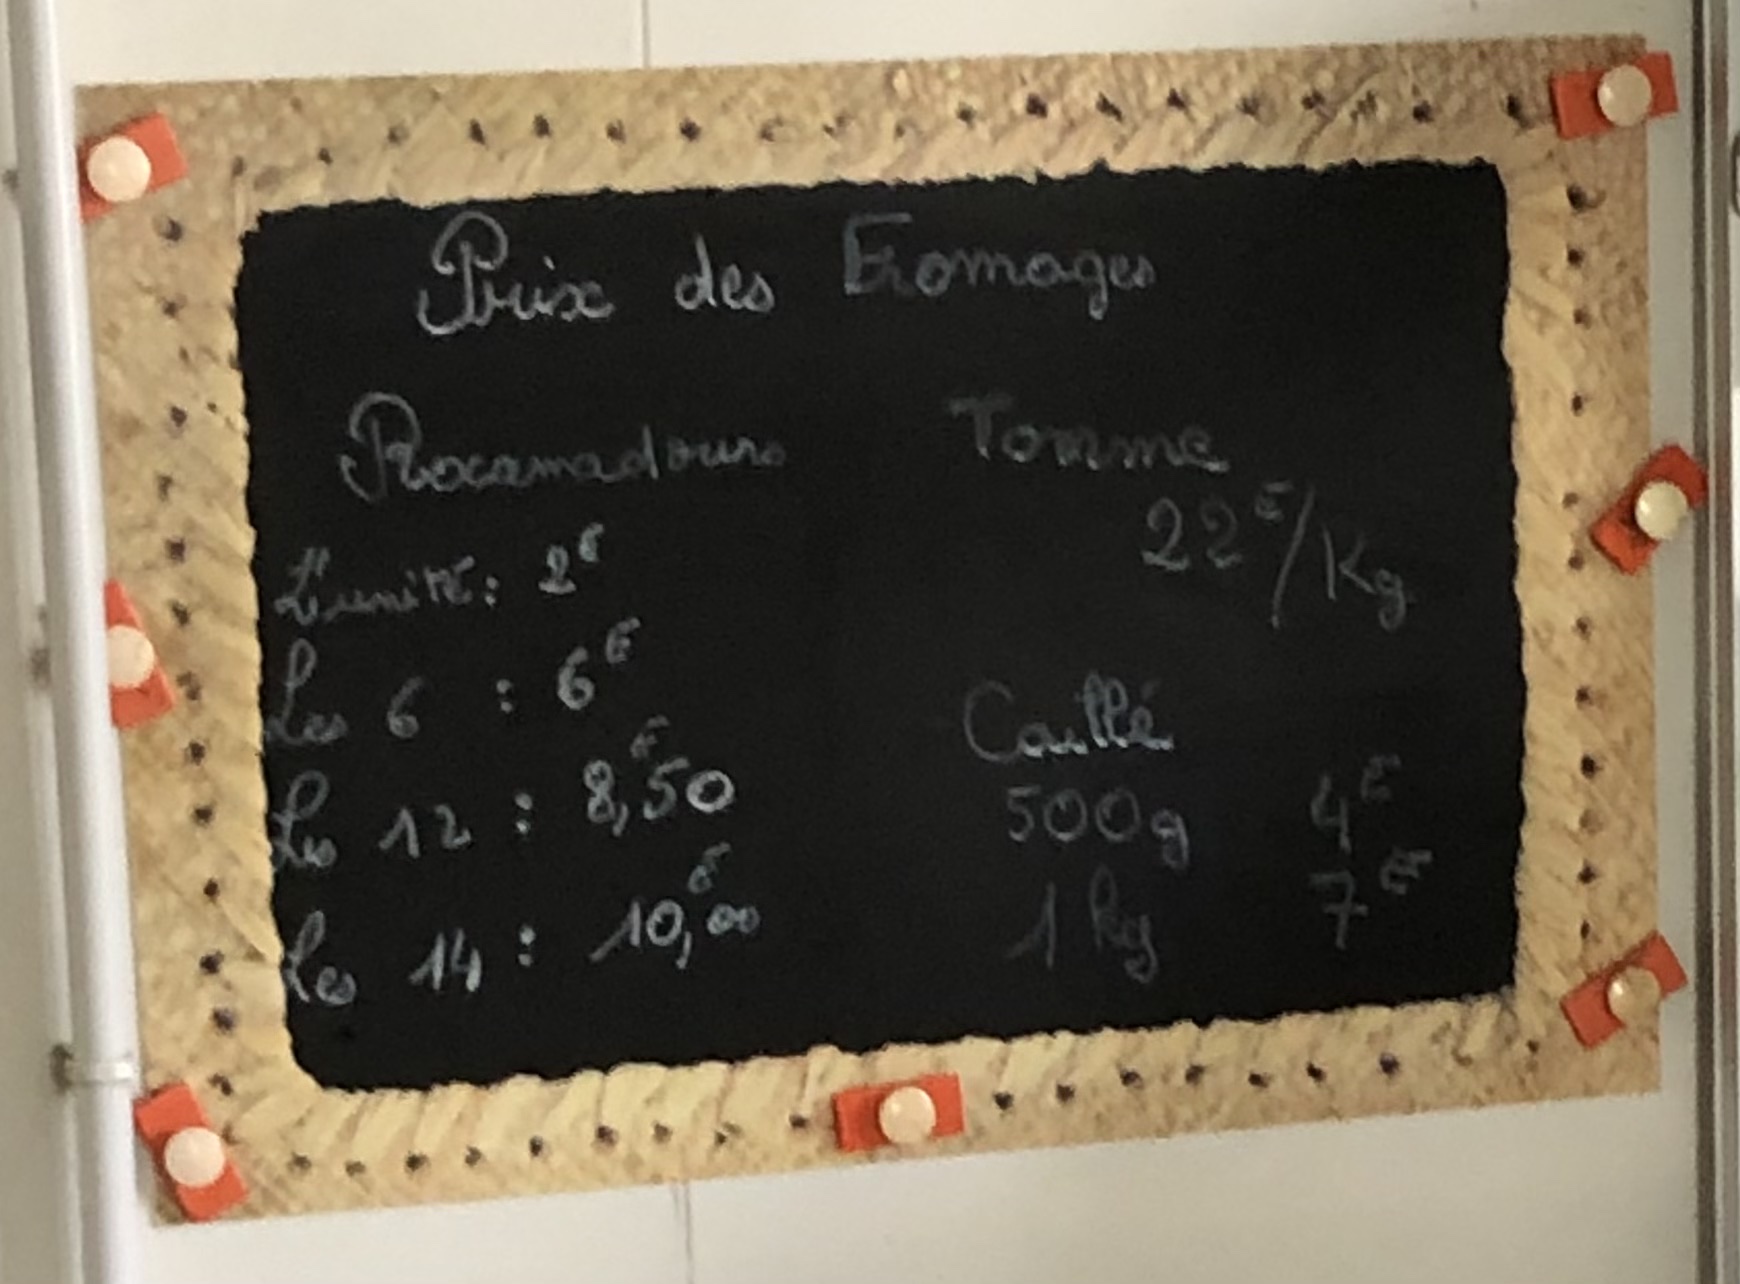 Prix des Fromages
Rocamadours
L'unité : 2€
Les 6 : 6€
Les 12 : 8,50€
Les 14 : 10,00€
Tomme
22€/Kg
Caillé
500g 4€
1 kg 7€